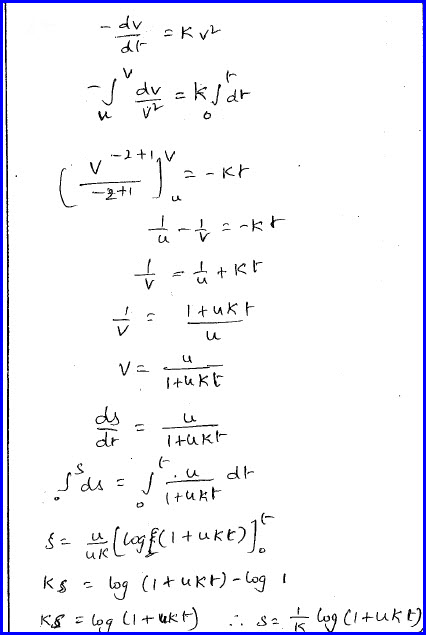 - dv/dt = K v²
- ∫_u^v dv/v² = K ∫_0^t dt
( v^(-2+1) / -2+1 ]_u^v = - Kt
1/u - 1/v = - K t
1/v = 1/u + K t
1/v = 1 + u K t / u
V = u / 1 + u K t
ds/dt = u / 1 + u K t
∫_0^s ds = ∫_0^t u / 1 + u K t dt
s = u/uK [ log (1 + u K t) ]_0^t
K s = log (1 + u K t) - log 1
K s = log (1 + u K t) ∴ s = 1/K log (1 + u K t)